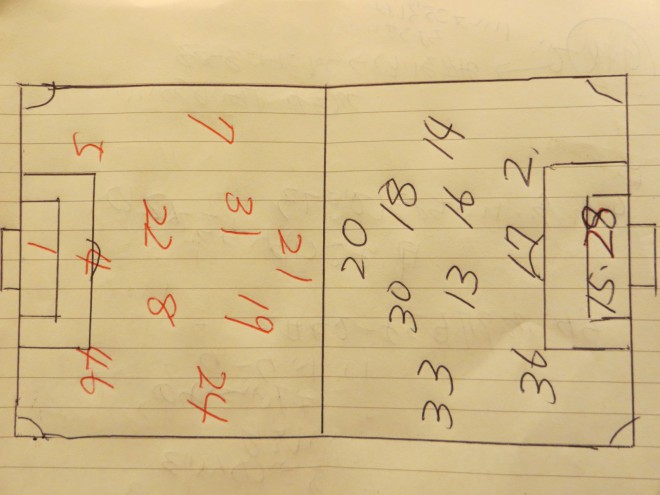 1
5
4
46
22
8
7
31
19
24
21
20
18
30
14
16
13
33
2.
17
36
15.28